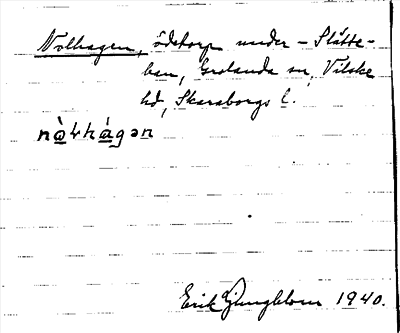 Nolhagen, ödetorp under - Slätte-
ban, Grolanda sn, Vilske
hd, Skaraborgs l.
nὰɫhágən
Erik Ljungblom 1940.